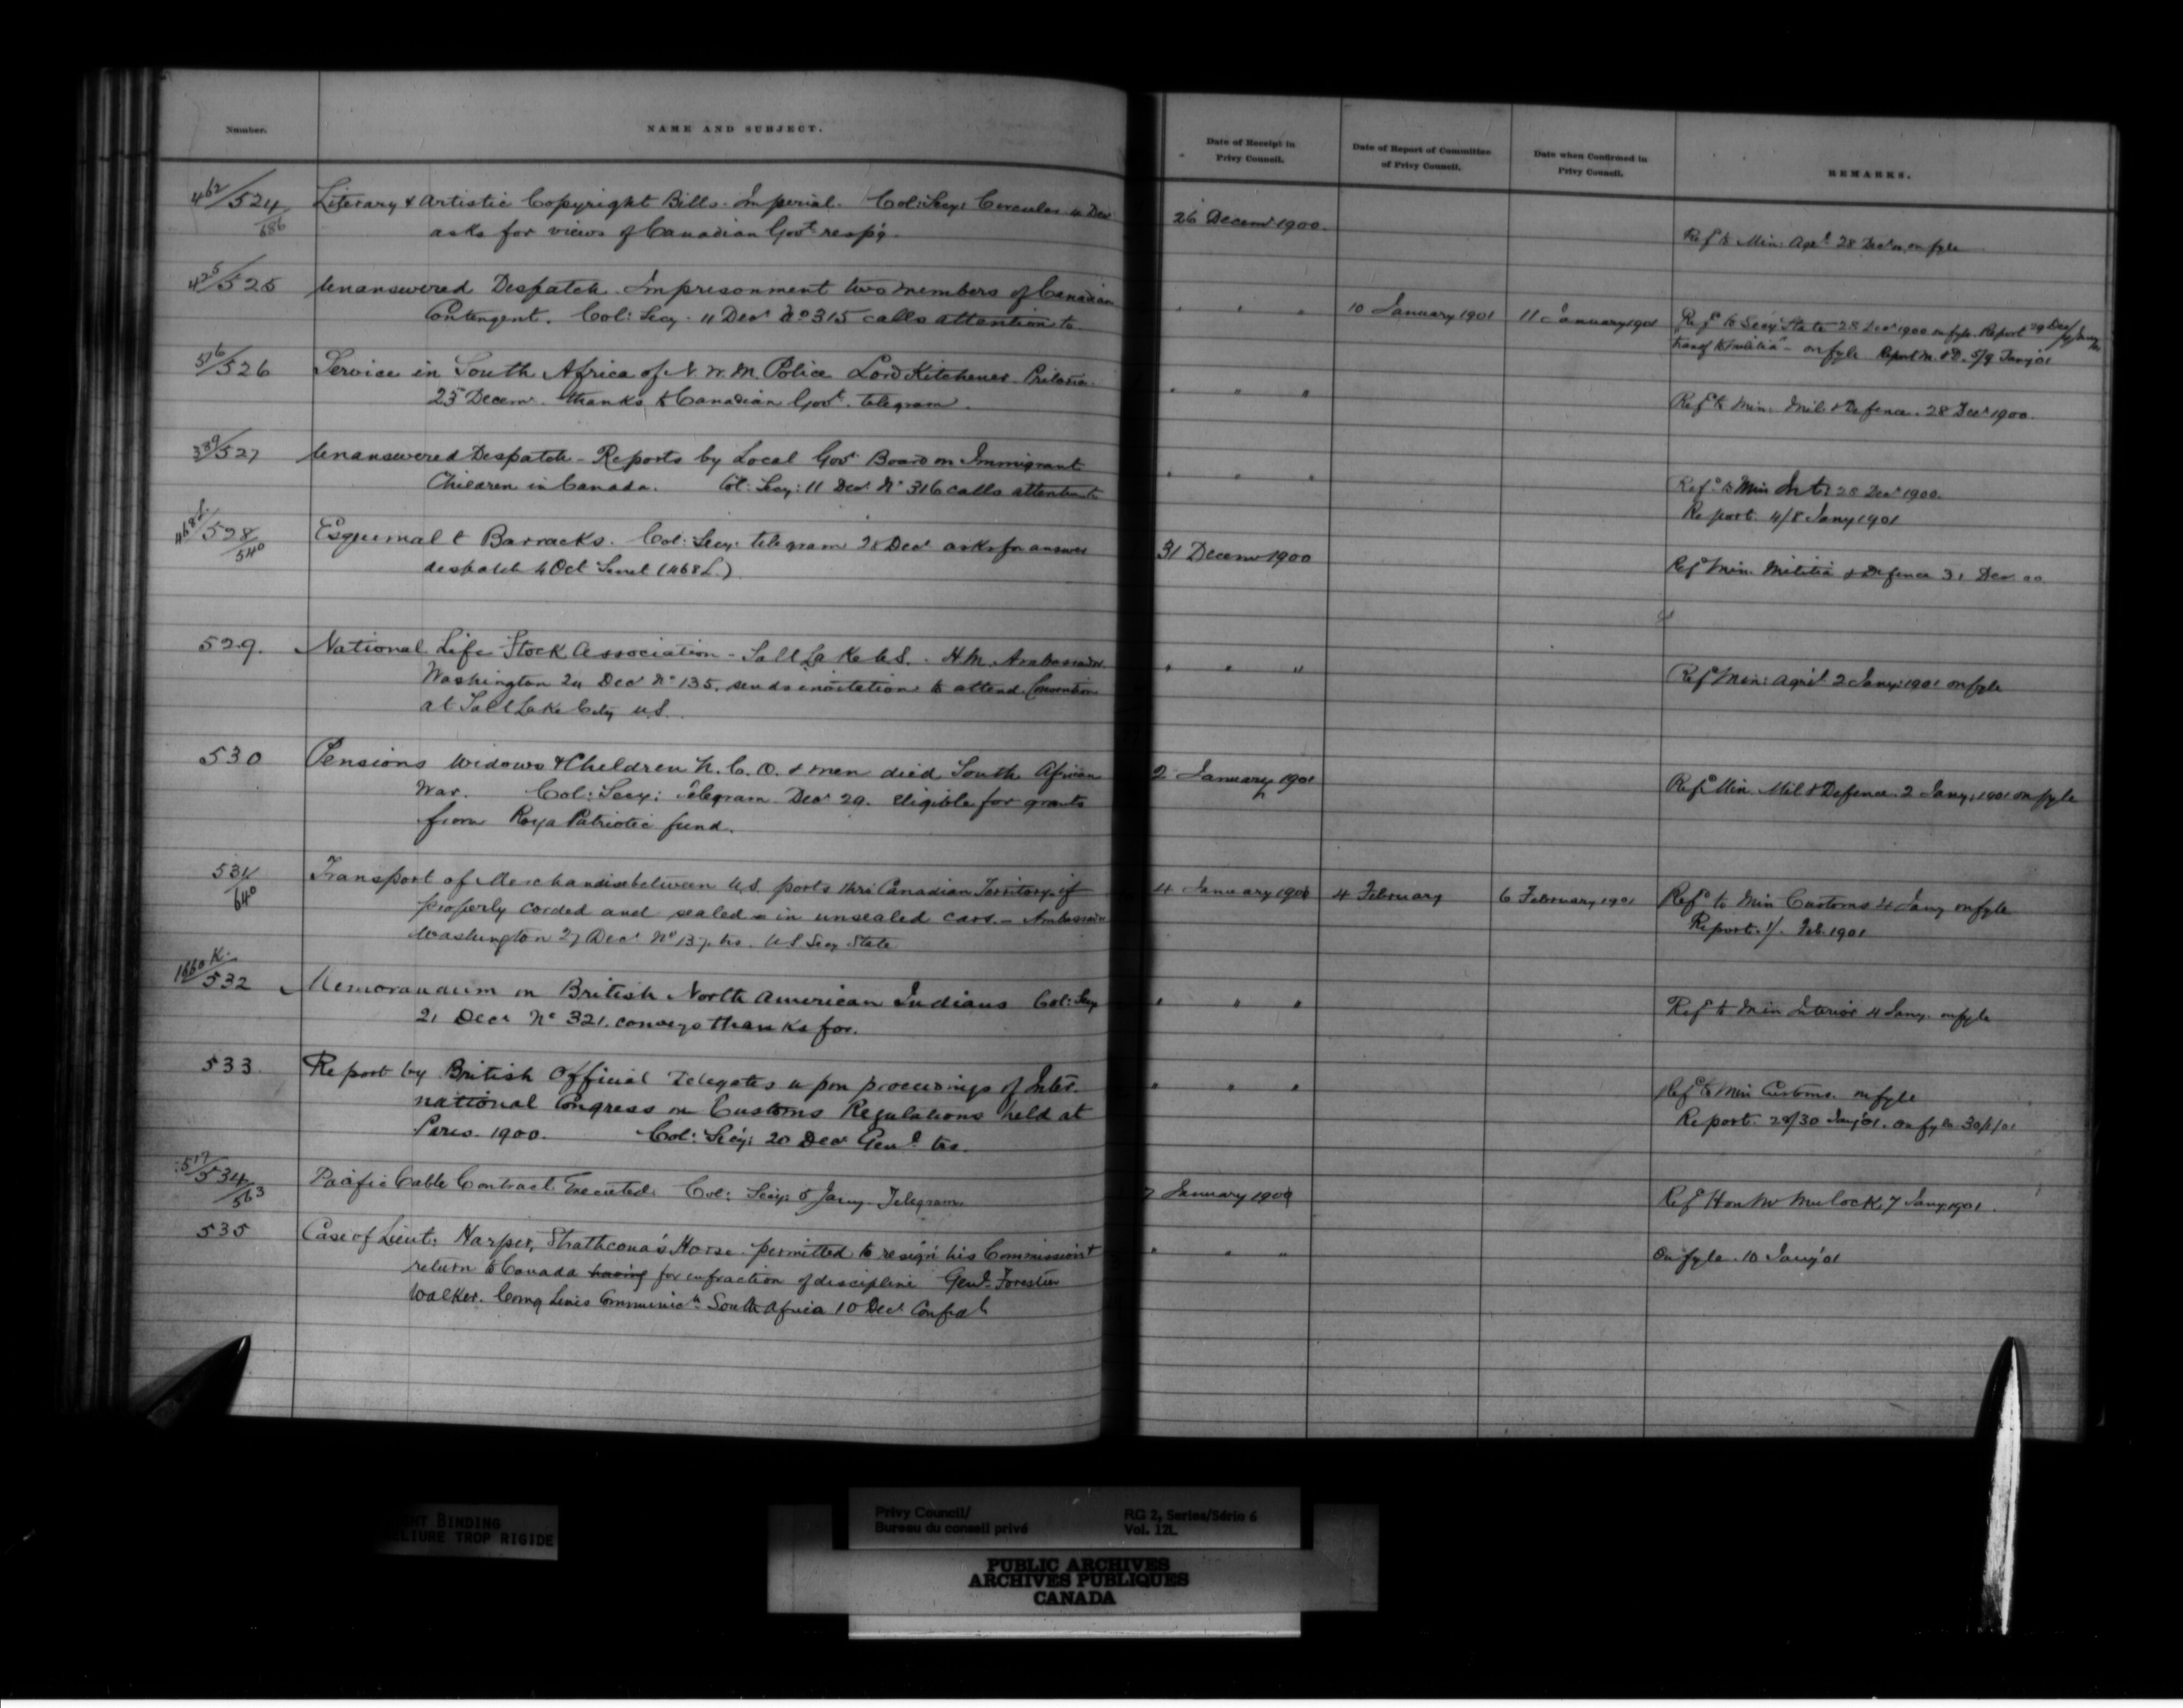 Number.
NAME AND SUBJECT.
Date of Receipt in
Privy Council.
Date of Report of Committee
of Privy Council.
Date when Confirmed in
Privy Council.
REMARKS.
462/524/686 Literary & Artistic Copyright Bills. Imperial. Col: Secy: Circular 4 Decr 26 Decemr 1900.
asks for views of Canadian Govt resp'g. Refd to Min: Agrl 28 Decr on fyle
425/525 Unanswered Despatch. Imprisonment two members of Canadian
Contingent. Col: Secy. 11 Decr No 315 calls attention to " " " 10 January 1901 11 January 1901 Refd to Secy State 28 Decr 1900 on fyle. Report 29 Decr
transf to militia - on fyle Report M. & D. 5/9 Jany '01
516/526 Service in South Africa of N. W. M. Police Lord Kitchener. Pretoria.
25 Decemr. thanks to Canadian Govt. telegram. " " " Refd to Min: Mil & Defence. 28 Decr 1900.
389/527 Unanswered Despatch - Reports by Local Govt Board on Immigrant
Children in Canada. Col: Secy: 11 Decr No 316 calls attention to " " " Refd to Min Intr 28 Decr 1900.
Report. 4/8 Jany 1901
468L/528/540 Esquimalt Barracks. Col: Secy: telegram 28 Decr asks for answer 31 Decemr 1900
despatch 4 Oct Secret (468L.) Refd Min. Militia & Defence 31 Decr 00
529. National Life Stock Association - Salt Lake U.S. - H.M. Ambassador " " "
Washington 24 Decr No 135. sends invitation to attend Convention Refd Min: Agril 2 Jany: 1901 on fyle
at Salt Lake City U.S.
530 Pensions Widows & Children N. C. O. & men died South African 2 January 1901
War. Col: Secy: telegram Decr 29. eligible for grants Refd Min. Mil & Defence. 2 Jany. 1901 on fyle
from Roya Patriotic fund.
531/640 Transport of Merchandise between U.S. ports thro Canadian Territory if 4 January 1901 4 February 6 February 1901 Refd to Min Customs 4 Jany on fyle
properly corded and sealed in unsealed cars. - Ambassador Report. 1/. Feb. 1901
Washington 27 Decr No 137. trs. U S Secy State
1660 K./532 Memorandum on British North American Indians Col: Secy " " " Refd to Min Interior 4 Jany. on fyle
21 Decr No 321. conveys thanks for.
533. Report by British Official Delegates upon proceedings of Inter- " " " Refd to Min Customs. on fyle
national Congress on Customs Regulations held at Report. 28/30 Jany '01. on fyle 30/1/01
Paris. 1900. Col: Secy: 20 Decr Genl trs.
517/534/563 Pacific Cable Contract. Executed. Col: Secy: 5 Jany. Telegram 7 January 1901 Refd Hon Mr Mulock, 7 Jany 1901.
535 Case of Lieut: Harper, Strathcona's Horse. permitted to resign his Commission & " " " On fyle. 10 Jany '01
return to Canada having for infraction of discipline Genl Forestier
Walker. Comg Lines Communicn South Africa 10 Decr Confal
HT BINDING
ELIURE TROP RIGIDE
Privy Council/
Bureau du conseil privé
RG 2, Series/Série 6
Vol. 12L
PUBLIC ARCHIVES
ARCHIVES PUBLIQUES
CANADA